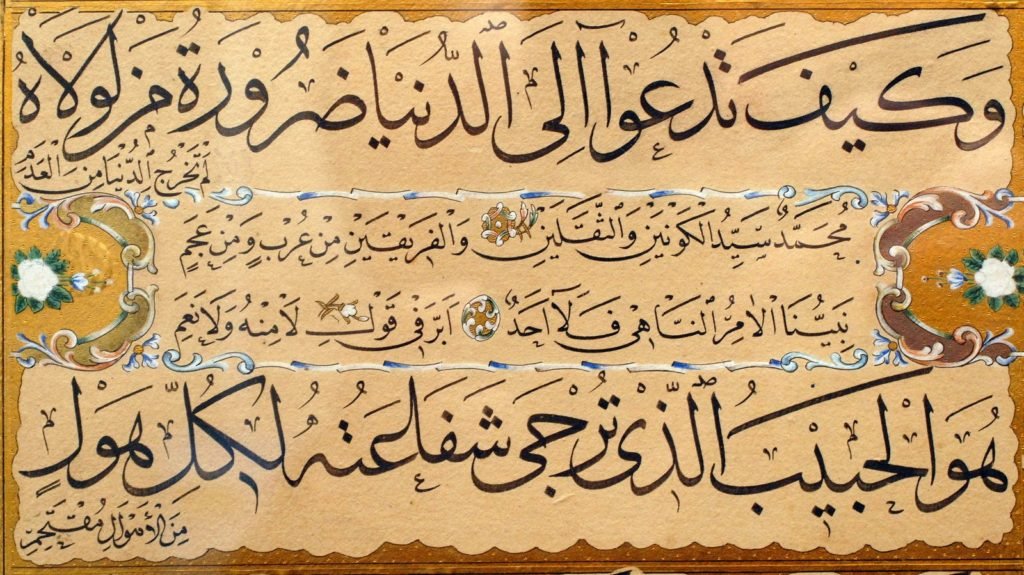 وَكَيْفَ تَدْعُوا اِلَى الدُّنْيَا ضَرُورَةُ مَنْ لَوْلَاهُ
لَمْ تَخْرُجِ الدُّنْيَا مِنَ الْعَدَمِ
مُحَمَّدٌ سَيِّدُ الْكَوْنَيْنِ وَالثَّقَلَيْنِ وَالْفَرِيقَيْنِ مِنْ عُرْبٍ وَمِنْ عَجَمِ
نَبِيُّنَا الْاٰمِرُ النَّاهِى فَلَا اَحَدٌ اَبَرَّ فِى قَوْلِ لَا مِنْهُ وَلَا نَعَمِ
هُوَ الْحَبِيبُ الَّذِى تُرْجَى شَفَاعَتُهُ لِكُلِّ هَوْلٍ
مِنَ الْاَهْوَالِ مُقْتَحَمِ